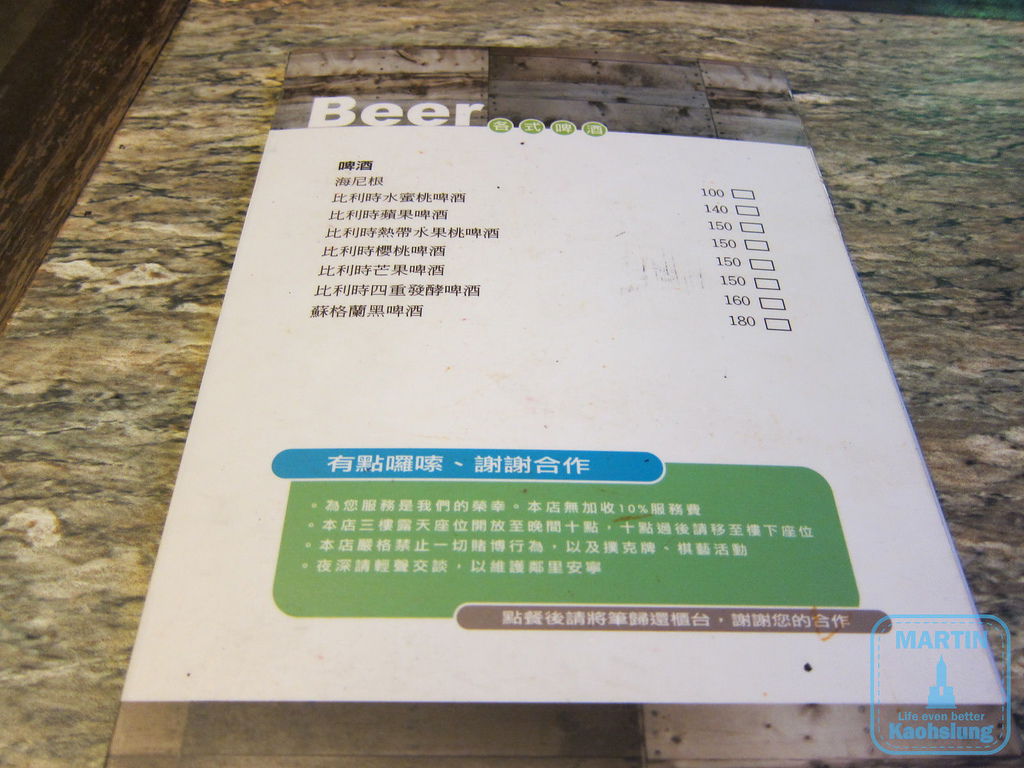 Beer 各式啤酒
啤酒
海尼根 100
比利時水蜜桃啤酒 140
比利時蘋果啤酒 150
比利時熱帶水果桃啤酒 150
比利時櫻桃啤酒 150
比利時芒果啤酒 150
比利時四重發酵啤酒 160
蘇格蘭黑啤酒 180
有點囉嗦、謝謝合作
。為您服務是我們的榮幸。本店無加收10%服務費
。本店三樓露天座位開放至晚間十點,十點過後請移至樓下座位
。本店嚴格禁止一切賭博行為,以及撲克牌、棋藝活動
。夜深請輕聲交談,以維護鄰里安寧
點餐後請將筆歸還櫃台,謝謝您的合作
MARTIN
Life even better
Kaohsiung